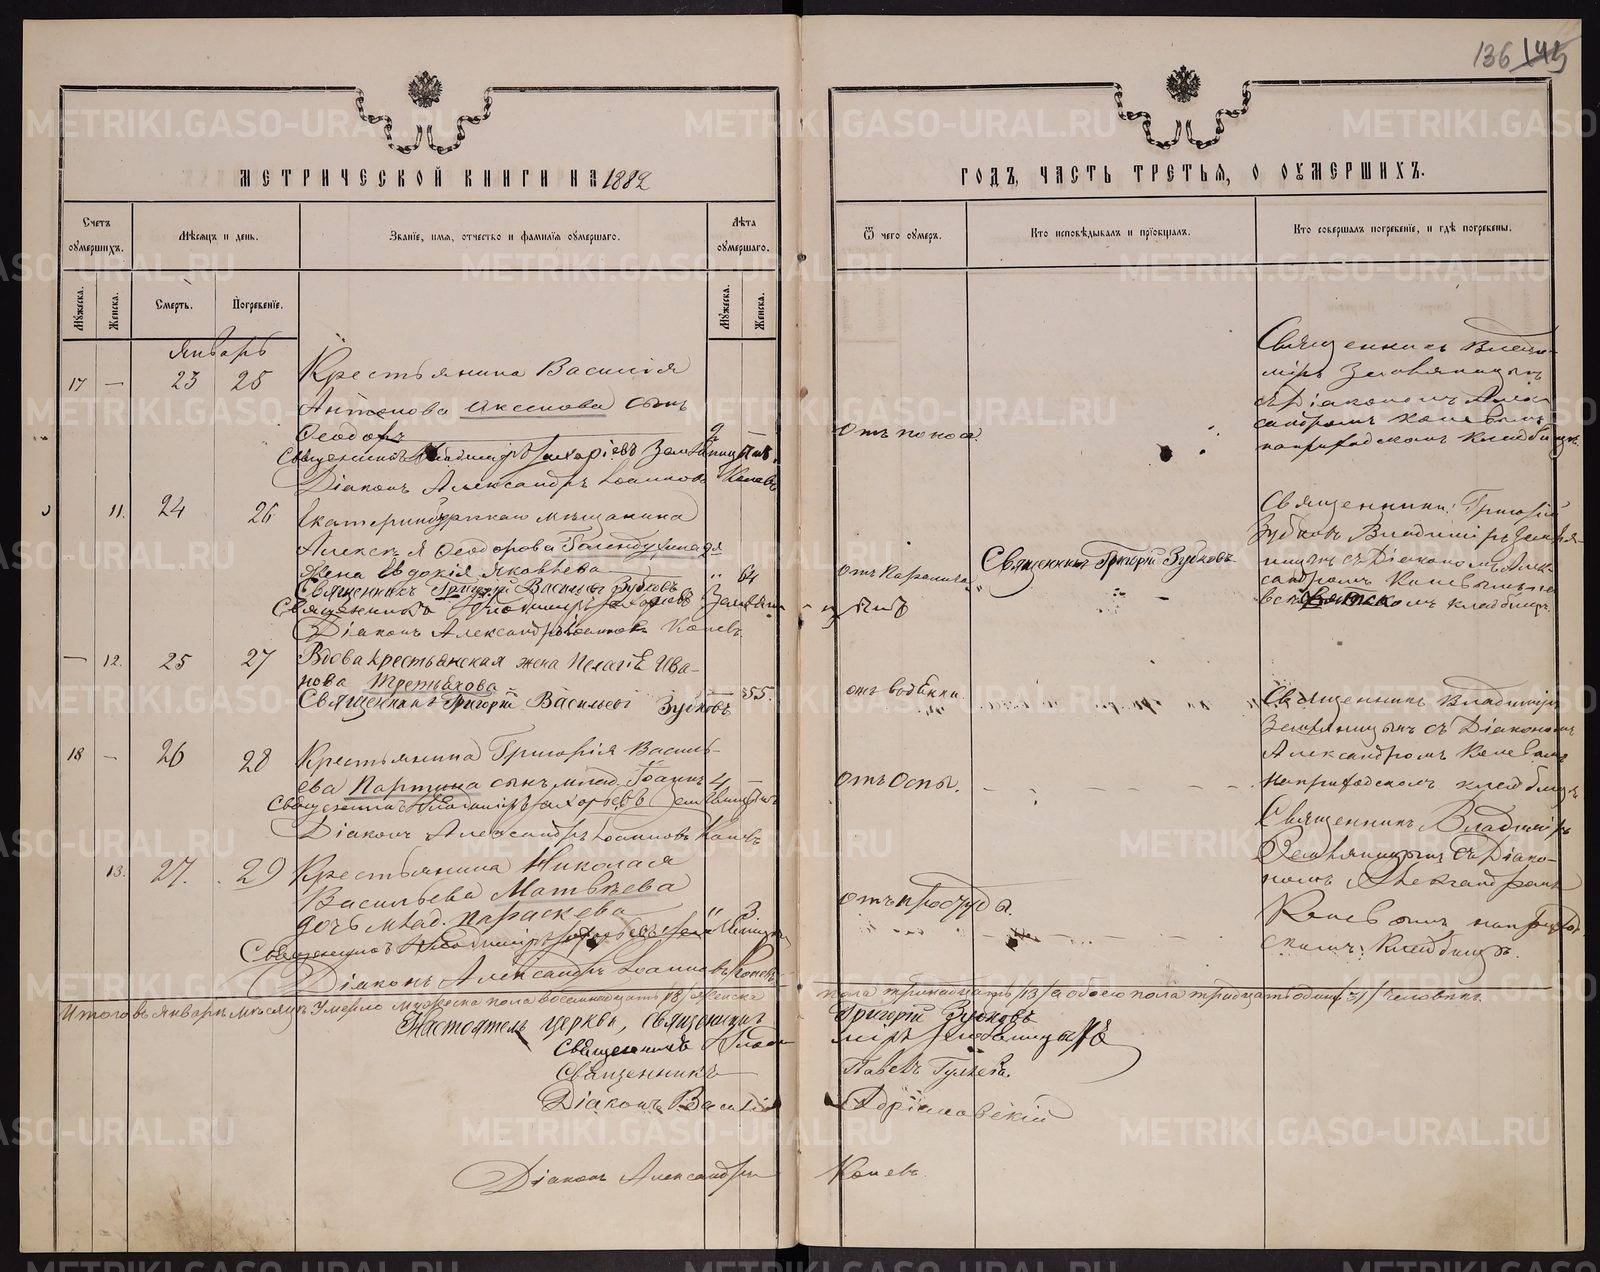 136 145
МЕТРИЧЕСКОЙ КНИГИ НА 1882
ГОДЪ, ЧАСТЬ ТРЕТЬЯ, О ОУМЕРШИХЪ.
Счетъ оумершихъ.
Мѣсяцъ и день.
Званіе, имя, отчество и фамилія оумершаго.
Лѣта оумершаго.
Ѿ чего оумеръ.
Кто исповѣдывалъ и пріобщалъ.
Кто совершалъ погребеніе, и гдѣ погребены.
Мужеска.
Женска.
Смерть.
Погребеніе.
Мужеска.
Женска.
Январь
17 — 23 25 Крестьянина Василія
Антонова Аксенова сынъ
Ѳеодоръ
Священникъ Владиміръ Захаріевъ
Діаконъ Александръ Іоанновъ Коневъ
Отъ поноса.
Священникъ Влади-
міръ Земляницынъ
съ Діакономъ Алек-
сандромъ Коневымъ
на приходскомъ кладбищѣ
11. 24 26 Екатеринбургскаго мѣщанина
Ѳеодорова
жена Евдокія Яковлева " 64
Священникъ Григорій Васильевъ Зубковъ
Священникъ
Діаконъ Александръ Іоанновъ Коневъ
Отъ паралича
Священникъ Григорій Зубковъ
Священники: Григорій
Зубковъ Владиміръ Земля-
ницынъ съ Діакономъ Алек-
сандромъ Коневымъ на
кладбищѣ
— 12. 25 27 Вдова крестьянская жена Пелагіѣ Ива-
нова Третьякова — 55.
Священникъ Григорій Васильевъ Зубковъ
отъ водянки.
Священникъ Владиміръ
Земляницынъ съ Діакономъ
Александромъ Коневымъ
на приходскомъ кладбищѣ
18 — 26 28 Крестьянина Григорія Василь-
ева Партина сынъ млад. Іоаннъ
Священникъ Владиміръ Захарьевъ
Діаконъ Александръ Іоанновъ Коневъ
отъ Оспы.
Священникъ Владиміръ
Земляницынъ съ Діако-
номъ Александромъ
Коневымъ на приход-
скомъ кладбищѣ.
13. 27. 29 Крестьянина Николая
Васильева Матвѣева
дочь млад. Параскева " 3.
Священникъ Владиміръ Захарьевъ
Діаконъ Александръ Іоанновъ Коневъ
отъ простуды.
Итого въ Январѣ мѣсяцѣ Умерло мужеска пола восемнадцать /18/ женска
пола тринадцать /13/ а обоего пола тридцать одинъ /31/ человѣкъ.
Настоятель церкви, Священникъ Григорій Зубковъ
Священникъ Влади міръ Земляницынъ
Священникъ Павелъ Гуляевъ.
Діаконъ Василій Адріановскій
Діаконъ Александръ Коневъ.
METRIKI.GASO-URAL.RU